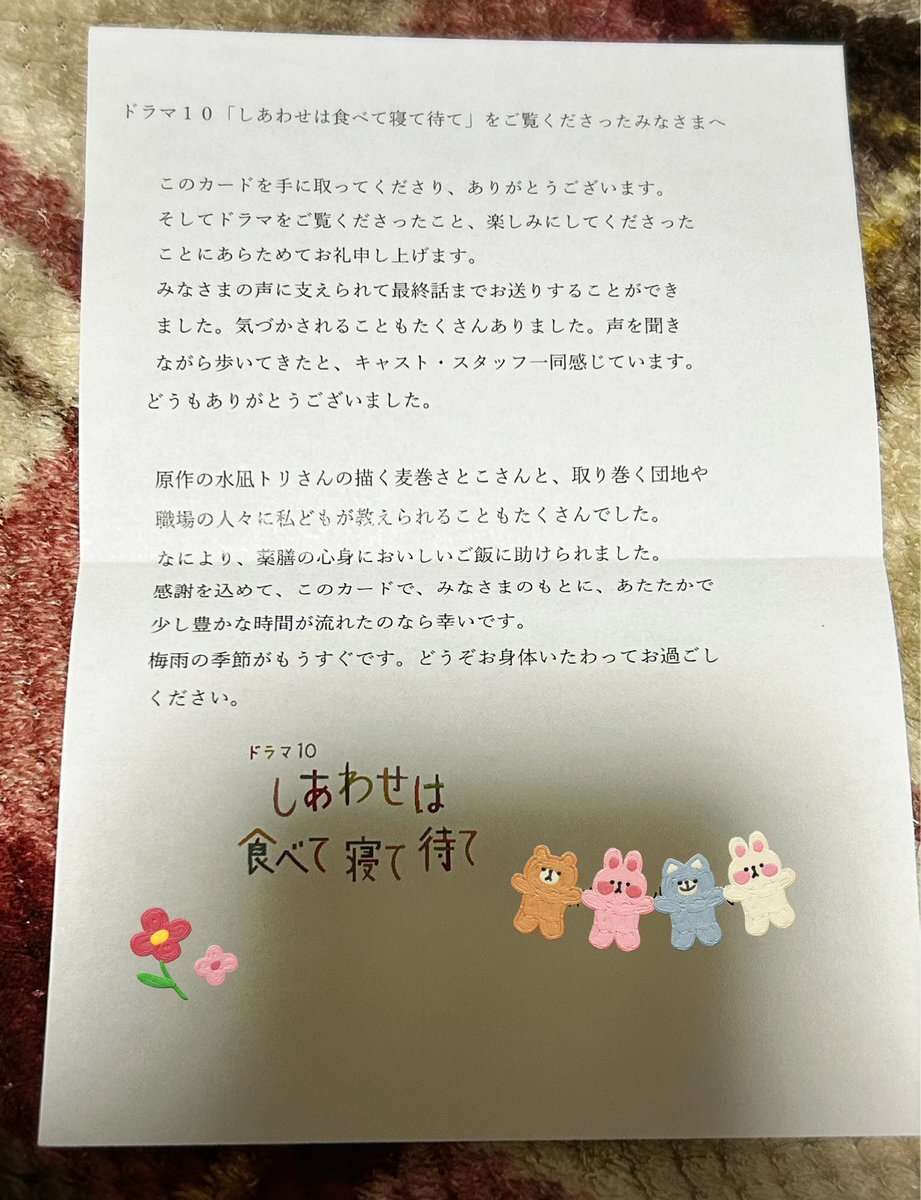 ドラマ１０「しあわせは食べて寝て待て」をご覧くださったみなさまへ
このカードを手に取ってくださり、ありがとうございます。
そしてドラマをご覧くださったこと、楽しみにしてくださった
ことにあらためてお礼申し上げます。
みなさまの声に支えられて最終話までお送りすることができ
ました。気づかされることもたくさんありました。声を聞き
ながら歩いてきたと、キャスト・スタッフ一同感じています。
どうもありがとうございました。
原作の水凪トリさんの描く麦巻さとこさんと、取り巻く団地や
職場の人々に私どもが教えられることもたくさんでした。
なにより、薬膳の心身においしいご飯に助けられました。
感謝を込めて、このカードで、みなさまのもとに、あたたかで
少し豊かな時間が流れたのなら幸いです。
梅雨の季節がもうすぐです。どうぞお身体いたわってお過ごし
ください。
ドラマ10
しあわせは
食べて寝て待て